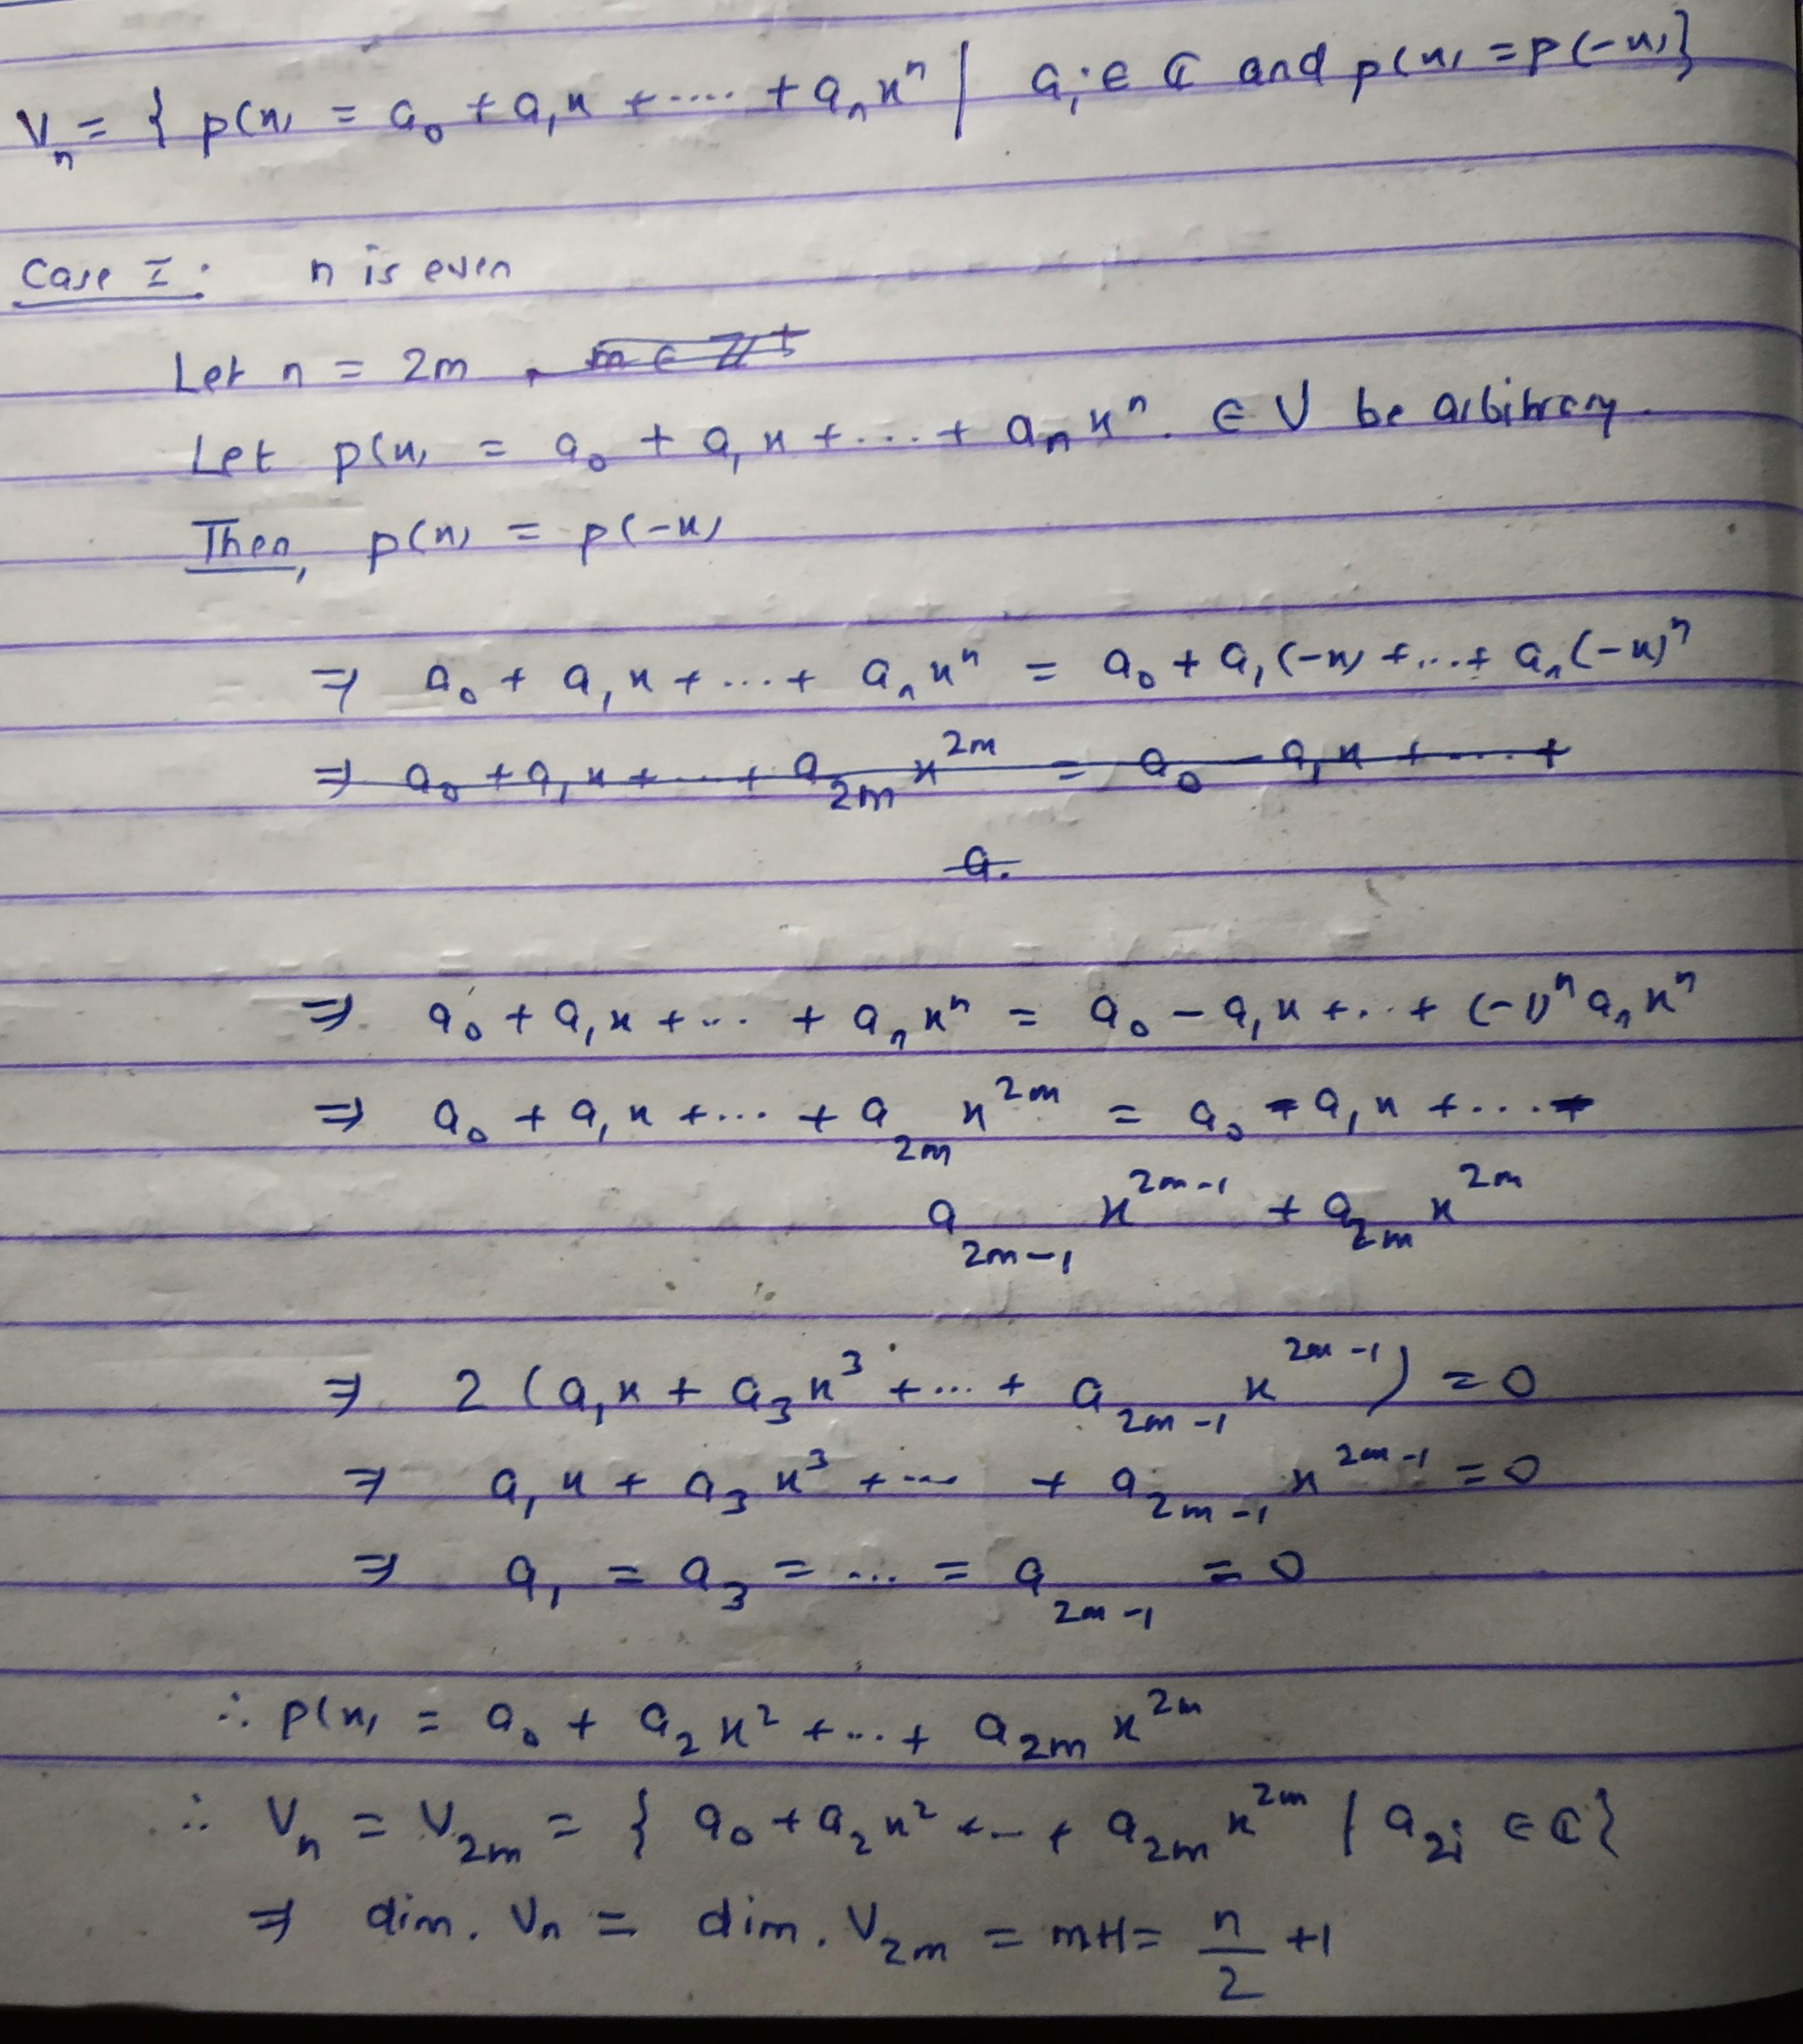 Vₙ = { p(x) = a₀ + a₁x + ..... + aₙxⁿ | aᵢ ∈ ℂ and p(x) = p(-x) }
Case I : n is even
Let n = 2m , m ∈ ℤ⁺
Let p(x) = a₀ + a₁x + ... + aₙxⁿ. ∈ V be arbitrary.
Then, p(x) = p(-x)
⇒ a₀ + a₁x + ... + aₙxⁿ = a₀ + a₁(-x) + ... + aₙ(-x)ⁿ
⇒ a₀ + a₁x + ... + a₂ₘ x²ᵐ = a₀ - a₁x + .... +
a.
⇒ a₀ + a₁x + ... + aₙxⁿ = a₀ - a₁x + ... + (-1)ⁿ aₙxⁿ
⇒ a₀ + a₁x + ... + a₂ₘ x²ᵐ = a₀ - a₁x + ... -
a₂ₘ₋₁ x²ᵐ⁻¹ + a₂ₘ x²ᵐ
⇒ 2 (a₁x + a₃x³ + ... + a₂ₘ₋₁ x²ᵐ⁻¹) = 0
⇒ a₁x + a₃x³ + ... + a₂ₘ₋₁ x²ᵐ⁻¹ = 0
⇒ a₁ = a₃ = ... = a₂ₘ₋₁ = 0
∴ p(x) = a₀ + a₂x² + ... + a₂ₘ x²ᵐ
∴ Vₙ = V₂ₘ = { a₀ + a₂x² + ... + a₂ₘ x²ᵐ | a₂ᵢ ∈ ℂ }
⇒ dim. Vₙ = dim. V₂ₘ = m+1 = n/2 + 1